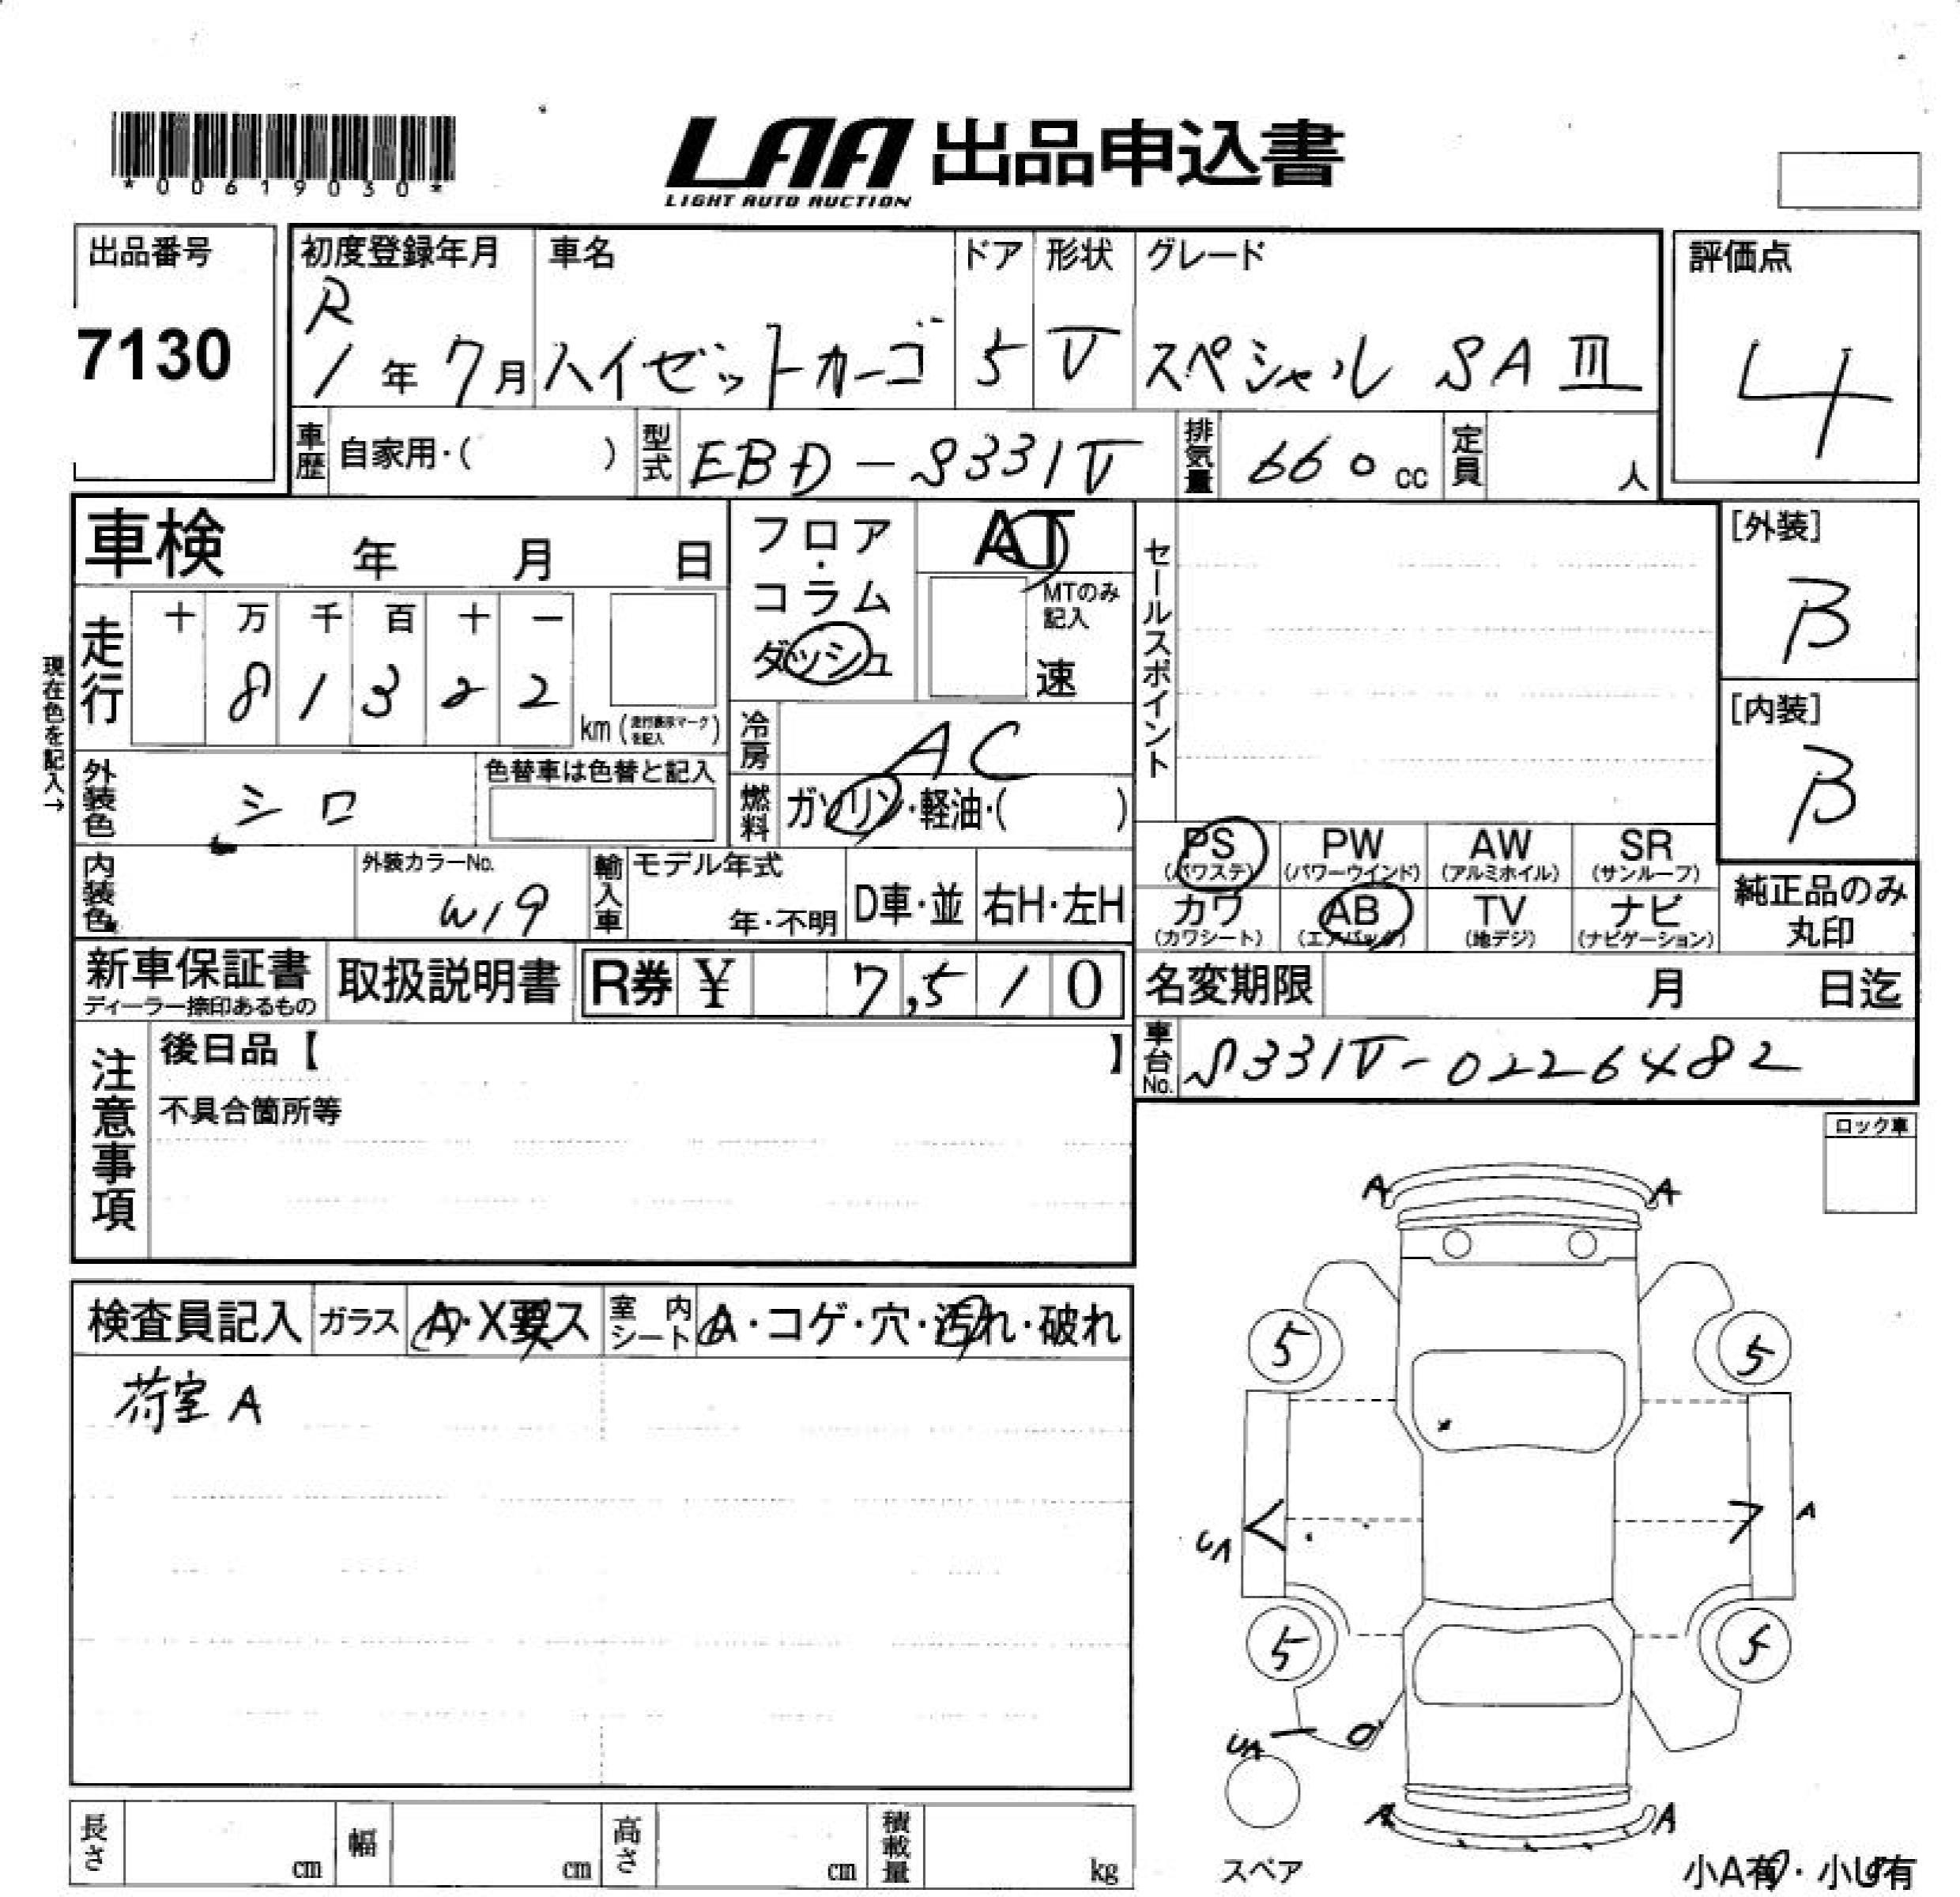 *00619030*
LAA 出品申込書
LIGHT AUTO AUCTION
出品番号
7130
初度登録年月
R
1年 7月
車名
ハイゼットカーゴ
ドア
5
形状
V
グレード
スペシャル SAⅢ
評価点
4
車歴 自家用・( )
型式 EBD-S331V
排気量 660 cc
定員 人
車検 年 月 日
フロア・コラム
ダッシュ
AT
MTのみ記入
速
セールスポイント
[外装]
B
[内装]
B
現在色を記入→
走行 十 万 千 百 十 一
8 1 3 2 2
km(走行表示マークを記入)
冷房 AC
外装色 シロ
色替車は色替と記入
燃料 ガソリン・軽油・( )
内装色
外装カラーNo.
W19
輸入車 モデル年式
年・不明
D車・並 右H・左H
PS (パワステ)
PW (パワーウインド)
AW (アルミホイル)
SR (サンルーフ)
カワ (カワシート)
AB (エアバッグ)
TV (地デジ)
ナビ (ナビゲーション)
純正品のみ丸印
新車保証書
ディーラー捺印あるもの
取扱説明書
R券 ¥ 7,510
名変期限 月 日迄
車台No. S331V-0226482
注意事項
後日品【 】
不具合箇所等
ロック車
検査員記入 ガラス A・X要ス
室内シート A・コゲ・穴・汚れ・破れ
荷室 A
A A
5 5
UA A
5 5
UA
A A
スペア
小A有・小U有
長さ cm
幅 cm
高さ cm
積載量 kg